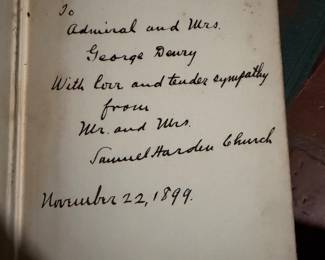 To
Admiral and Mrs.
George Dewey
With love and tender sympathy
from
Mr. and Mrs.
Samuel Harden Church
November 22, 1899.